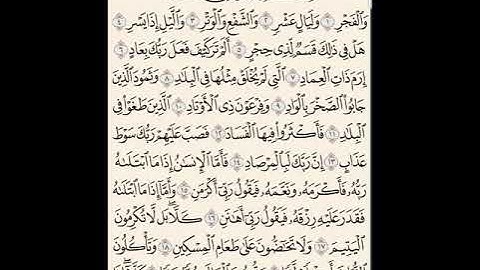 وَٱلْفَجْرِ ١ وَلَيَالٍ عَشْرٍ ٢ وَٱلشَّفْعِ وَٱلْوَتْرِ ٣ وَٱلَّيْلِ إِذَا يَسْرِ ٤
هَلْ فِى ذَٰلِكَ قَسَمٌ لِّذِى حِجْرٍ ٥ أَلَمْ تَرَ كَيْفَ فَعَلَ رَبُّكَ بِعَادٍ ٦
إِرَمَ ذَاتِ ٱلْعِمَادِ ٧ ٱلَّتِى لَمْ يُخْلَقْ مِثْلُهَا فِى ٱلْبِلَٰدِ ٨ وَثَمُودَ ٱلَّذِينَ
جَابُوا۟ ٱلصَّخْرَ بِٱلْوَادِ ٩ وَفِرْعَوْنَ ذِى ٱلْأَوْتَادِ ١٠ ٱلَّذِينَ طَغَوْا۟ فِى
ٱلْبِلَٰدِ ١١ فَأَكْثَرُوا۟ فِيهَا ٱلْفَسَادَ ١٢ فَصَبَّ عَلَيْهِمْ رَبُّكَ سَوْطَ
عَذَابٍ ١٣ إِنَّ رَبَّكَ لَبِٱلْمِرْصَادِ ١٤ فَأَمَّا ٱلْإِنسَٰنُ إِذَا مَا ٱبْتَلَىٰهُ
رَبُّهُۥ فَأَكْرَمَهُۥ وَنَعَّمَهُۥ فَيَقُولُ رَبِّىٓ أَكْرَمَنِ ١٥ وَأَمَّآ إِذَا مَا ٱبْتَلَىٰهُ
فَقَدَرَ عَلَيْهِ رِزْقَهُۥ فَيَقُولُ رَبِّىٓ أَهَٰنَنِ ١٦ كَلَّا ۖ بَل لَّا تُكْرِمُونَ
ٱلْيَتِيمَ ١٧ وَلَا تَحَٰٓضُّونَ عَلَىٰ طَعَامِ ٱلْمِسْكِينِ ١٨ وَتَأْكُلُونَ